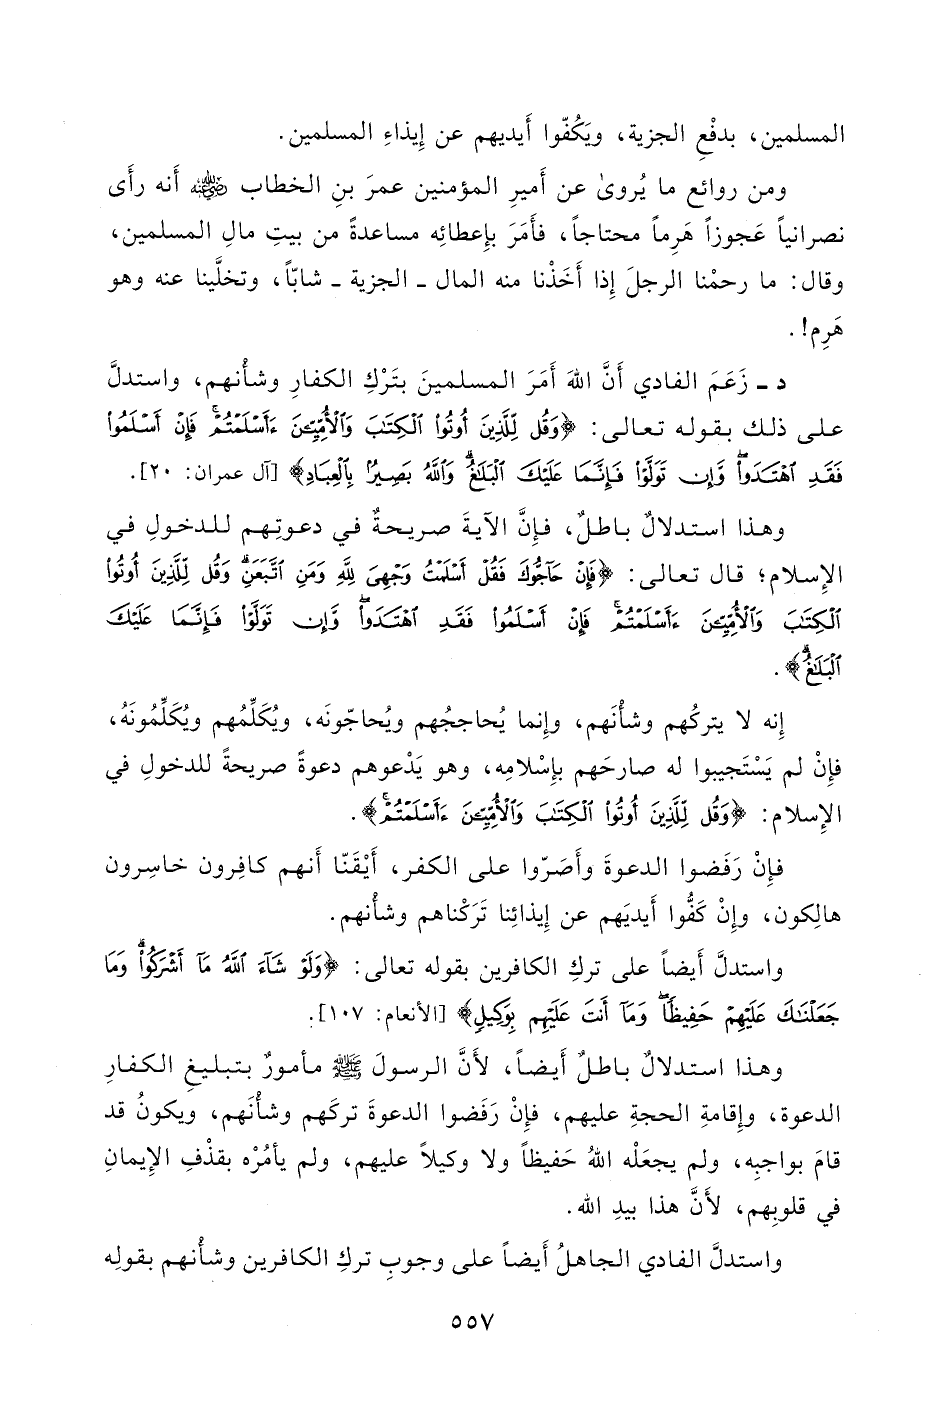 المسلمين، بدفْعِ الجزية، ويَكُفّوا أَيديهم عن إِيذاءِ المسلمين.
ومن روائع ما يُروىٰ عن أَميرِ المؤمنين عمرَ بنِ الخطاب رضي الله عنه أَنه رأَى
نصرانياً عَجوزاً هَرِماً محتاجاً، فأَمَرَ بإِعطائِه مساعدةً من بيتِ مالِ المسلمين،
وقال: ما رحمْنا الرجلَ إِذا أَخَذْنا منه المال ـ الجزية ـ شابّاً، وتخلَّينا عنه وهو
هَرِم!.
د ـ زَعَمَ الفادي أَنَّ اللهَ أَمَرَ المسلمينَ بتَرْكِ الكفارِ وشأْنهم، واستدلَّ
على ذلك بقوله تعالى: ﴿وَقُل لِّلَّذِينَ أُوتُوا۟ ٱلْكِتَٰبَ وَٱلْأُمِّيِّۦنَ ءَأَسْلَمْتُمْ ۚ فَإِنْ أَسْلَمُوا۟
فَقَدِ ٱهْتَدَوا۟ ۖ وَّإِن تَوَلَّوْا۟ فَإِنَّمَا عَلَيْكَ ٱلْبَلَٰغُ ۗ وَٱللَّهُ بَصِيرٌۢ بِٱلْعِبَادِ﴾ [آل عمران: ٢٠].
وهذا استدلالٌ باطلٌ، فإِنَّ الآيةَ صريحةٌ في دعوتِهم للدخولِ في
الإِسلام؛ قال تعالى: ﴿فَإِنْ حَآجُّوكَ فَقُلْ أَسْلَمْتُ وَجْهِىَ لِلَّهِ وَمَنِ ٱتَّبَعَنِ ۗ وَقُل لِّلَّذِينَ أُوتُوا۟
ٱلْكِتَٰبَ وَٱلْأُمِّيِّۦنَ ءَأَسْلَمْتُمْ ۚ فَإِنْ أَسْلَمُوا۟ فَقَدِ ٱهْتَدَوا۟ ۖ وَّإِن تَوَلَّوْا۟ فَإِنَّمَا عَلَيْكَ
ٱلْبَلَٰغُ ۗ﴾.
إِنه لا يتركُهم وشأْنَهم، وإِنما يُحاججُهم ويُحاجّونَه، ويُكَلِّمُهم ويُكَلِّمُونَهُ،
فإِنْ لم يَسْتَجيبوا له صارحَهم بإِسْلامِه، وهو يَدْعوهم دعوةً صريحةً للدخولِ في
الإِسلام: ﴿وَقُل لِّلَّذِينَ أُوتُوا۟ ٱلْكِتَٰبَ وَٱلْأُمِّيِّۦنَ ءَأَسْلَمْتُمْ ۚ﴾.
فإِنْ رَفَضوا الدعوةَ وأَصَرّوا على الكفر، أَيْقَنّا أَنهم كافِرون خاسِرون
هالِكون، وإِنْ كَفُّوا أَيديَهم عن إِيذائِنا تَرَكْناهم وشأْنهم.
واستدلَّ أَيضاً على تركِ الكافرين بقوله تعالى: ﴿وَلَوْ شَآءَ ٱللَّهُ مَآ أَشْرَكُوا۟ ۗ وَمَا
جَعَلْنَٰكَ عَلَيْهِمْ حَفِيظًا ۖ وَمَآ أَنتَ عَلَيْهِم بِوَكِيلٍ﴾ [الأنعام: ١٠٧].
وهذا استدلالٌ باطلٌ أَيضاً، لأَنَّ الرسولَ ﷺ مأمورٌ بتبليغِ الكفارِ
الدعوة، وإِقامةِ الحجةِ عليهم، فإِنْ رَفَضوا الدعوةَ تركَهم وشأْنَهم، ويكونُ قد
قامَ بواجبِه، ولم يجعَلْه اللهُ حَفيظاً ولا وكيلاً عليهم، ولم يأمُرْه بقذْفِ الإِيمانِ
في قلوبِهم، لأَنَّ هذا بيدِ الله.
واستدلَّ الفادي الجاهلُ أَيضاً على وجوبِ تركِ الكافرين وشأْنهم بقولِه
٥٥٧